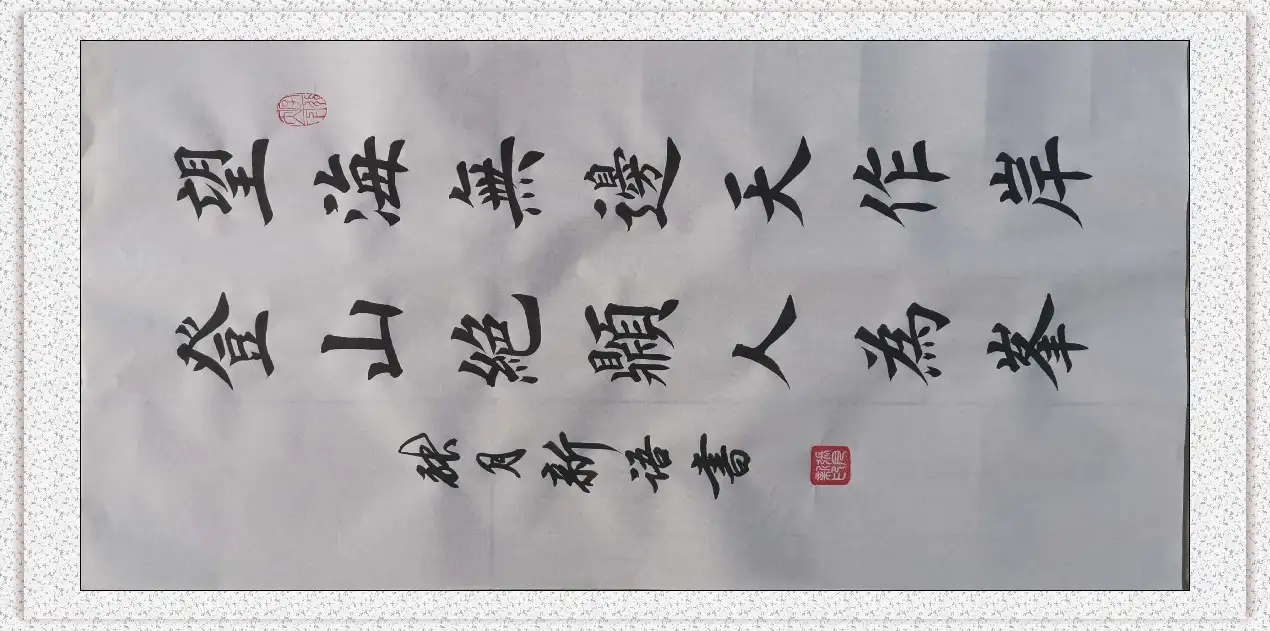 望海無邊天作岸
登山絕顛人為峯
月新语書